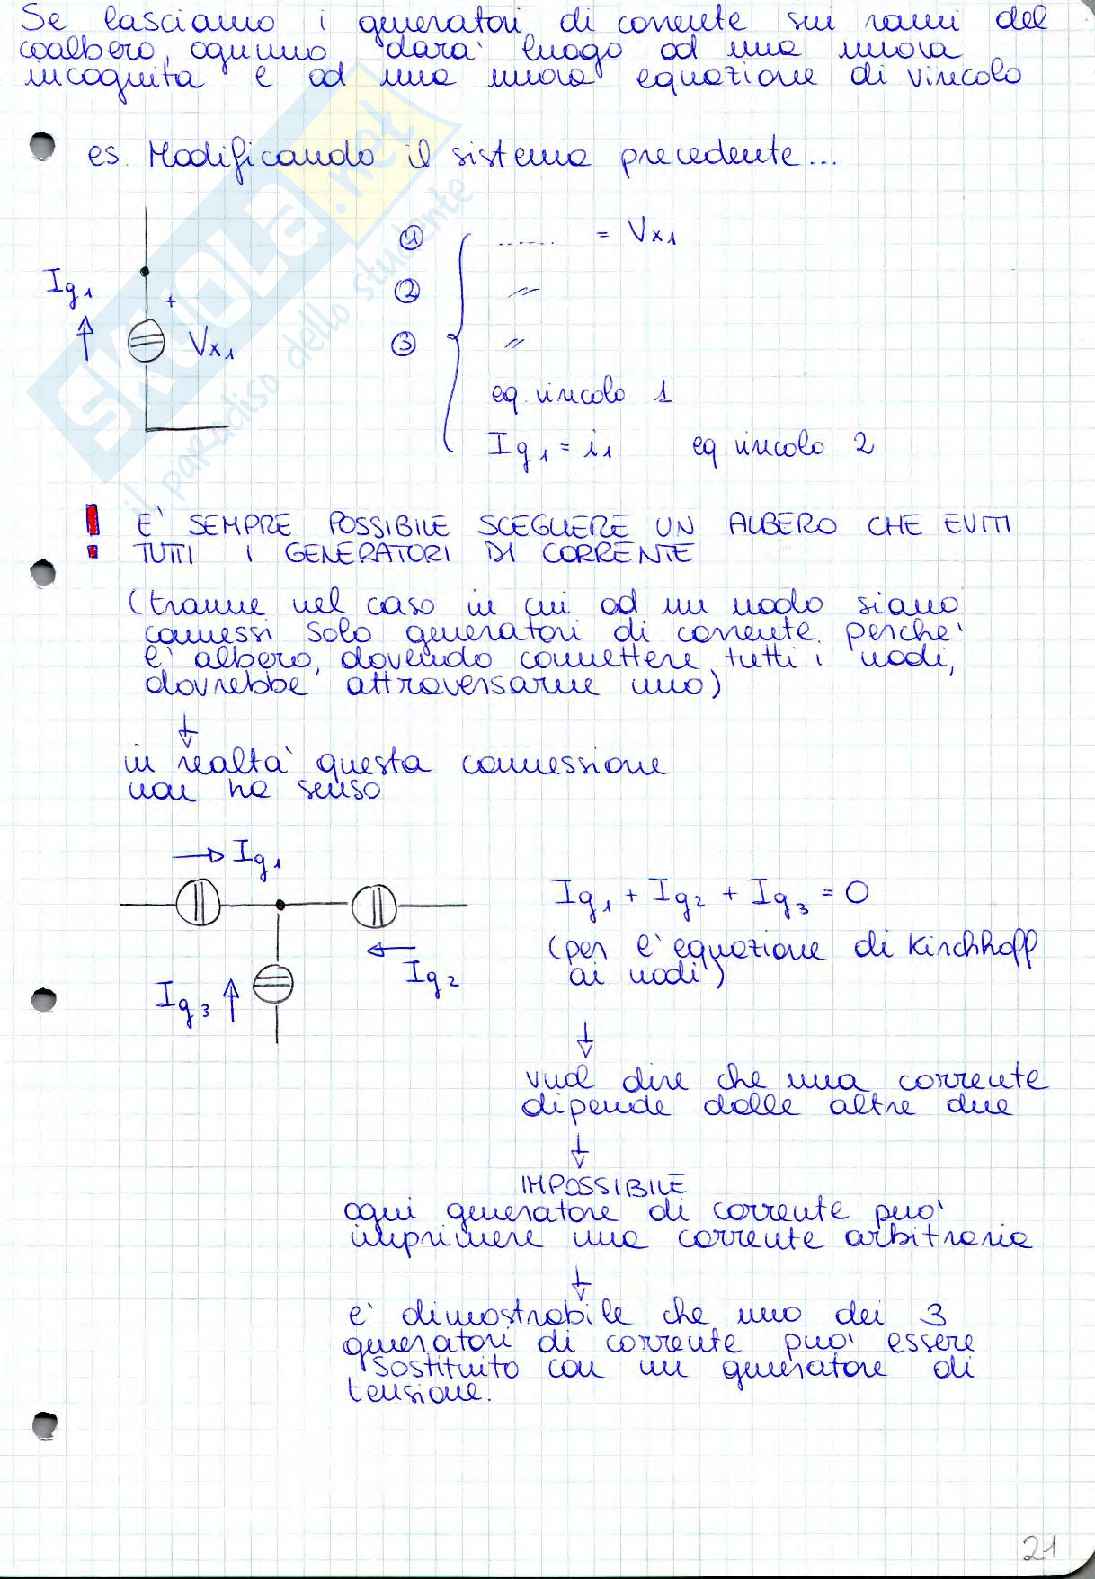 Se lasciamo i generatori di corrente sui rami del
coalbero, ognuno darà luogo ad una nuova
incognita e ad una nuova equazione di vincolo
es. Modificando il sistema precedente...
Ig1
+
Vx1
① ...... = Vx1
② "
③ "
eq. vincolo 1
Ig1 = i1 eq vincolo 2
! E' SEMPRE POSSIBILE SCEGLIERE UN ALBERO CHE EVITI
TUTTI I GENERATORI DI CORRENTE
(tranne nel caso in cui ad un nodo siano
connessi solo generatori di corrente. perche'
l'albero, dovendo connettere tutti i nodi,
dovrebbe attraversarne uno)
in realta' questa connessione
non ha senso
Ig1
Ig2
Ig3
Ig1 + Ig2 + Ig3 = 0
(per l'equazione di Kirchhoff
ai nodi)
vuol dire che una corrente
dipende dalle altre due
IMPOSSIBILE
ogni generatore di corrente puo'
imprimere una corrente arbitraria
e' dimostrabile che uno dei 3
generatori di corrente puo' essere
sostituito con un generatore di
tensione.
21
SKUOLA.net
il paradiso dello studente